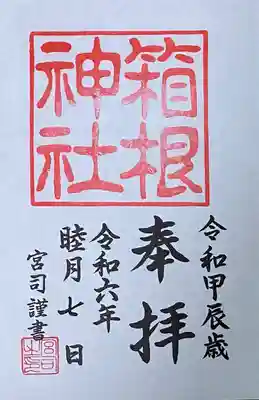 箱根
神社
令和甲辰歳
奉拝
令和六年
睦月七日
宮司謹書
宮司之印